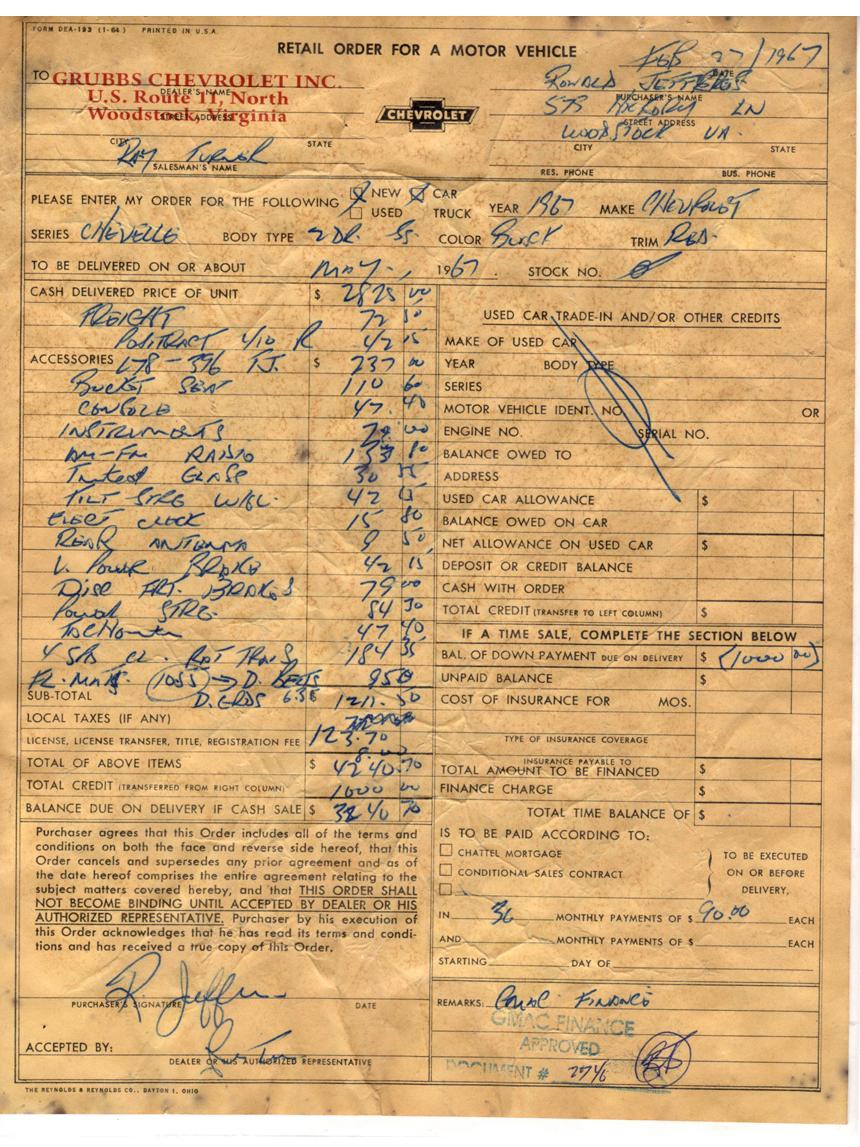 FORM DEA-193 (1-64) PRINTED IN U.S.A.
RETAIL ORDER FOR A MOTOR VEHICLE
FEB 27/1967
DATE
TO GRUBBS CHEVROLET INC.
DEALER'S NAME
U.S. Route 11, North
Woodstock, Virginia
STREET ADDRESS
CHEVROLET
RONALD JEFFERES
PURCHASER'S NAME
579 HICKORY LN
STREET ADDRESS
WOODSTOCK VA.
CITY STATE
CITY STATE
RAY TURNER
SALESMAN'S NAME
RES. PHONE BUS. PHONE
PLEASE ENTER MY ORDER FOR THE FOLLOWING NEW CAR
USED TRUCK YEAR 1967 MAKE CHEVROLET
SERIES CHEVELLE BODY TYPE 2 DR. SS. COLOR TRIM RED.
TO BE DELIVERED ON OR ABOUT MAY., 1967. STOCK NO.
CASH DELIVERED PRICE OF UNIT $ 2825 00
FREIGHT 72 50
POSITRACT 4/10 R 42 15
ACCESSORIES L78-396 T.J. $ 237 00
BUCKET SEAT 110 60
CONSOLE 47.40
INSTRUMENTS 79 00
AM-FM RADIO 133 80
Tinted GLASS 30 55
TILT STRG WHL. 42 15
ELECT CLOCK 15 80
REAR ANTENNA 9 50
V. POWER BRAKE 42 15
DISC FRT. BRAKES 79 00
POWER STRG. 84 30
47 40
4 SPD CL. RAT TRANS 184 35
FL. MATS (1055) → D. BELTS 950
SUB-TOTAL D. GRDS 6.35 1211.50
LOCAL TAXES (IF ANY)
LICENSE, LICENSE TRANSFER, TITLE, REGISTRATION FEE 123.70
8.00
TOTAL OF ABOVE ITEMS $ 4240.70
TOTAL CREDIT (TRANSFERRED FROM RIGHT COLUMN) 1000 00
BALANCE DUE ON DELIVERY IF CASH SALE $ 3240 70
Purchaser agrees that this Order includes all of the terms and
conditions on both the face and reverse side hereof, that this
Order cancels and supersedes any prior agreement and as of
the date hereof comprises the entire agreement relating to the
subject matters covered hereby, and that THIS ORDER SHALL
NOT BECOME BINDING UNTIL ACCEPTED BY DEALER OR HIS
AUTHORIZED REPRESENTATIVE. Purchaser by his execution of
this Order acknowledges that he has read its terms and condi-
tions and has received a true copy of this Order.
PURCHASER'S SIGNATURE DATE
ACCEPTED BY:
DEALER OR HIS AUTHORIZED REPRESENTATIVE
THE REYNOLDS & REYNOLDS CO., DAYTON 1, OHIO
USED CAR TRADE-IN AND/OR OTHER CREDITS
MAKE OF USED CAR
YEAR BODY TYPE
SERIES
MOTOR VEHICLE IDENT. NO. OR
ENGINE NO. SERIAL NO.
BALANCE OWED TO
ADDRESS
USED CAR ALLOWANCE $
BALANCE OWED ON CAR
NET ALLOWANCE ON USED CAR $
DEPOSIT OR CREDIT BALANCE
CASH WITH ORDER
TOTAL CREDIT (TRANSFER TO LEFT COLUMN) $
IF A TIME SALE, COMPLETE THE SECTION BELOW
BAL. OF DOWN PAYMENT DUE ON DELIVERY $ (1000 00)
UNPAID BALANCE $
COST OF INSURANCE FOR MOS.
TYPE OF INSURANCE COVERAGE
INSURANCE PAYABLE TO
TOTAL AMOUNT TO BE FINANCED $
FINANCE CHARGE $
TOTAL TIME BALANCE OF $
IS TO BE PAID ACCORDING TO:
CHATTEL MORTGAGE
CONDITIONAL SALES CONTRACT
TO BE EXECUTED
ON OR BEFORE
DELIVERY,
IN 36 MONTHLY PAYMENTS OF $ 90.00 EACH
AND MONTHLY PAYMENTS OF $ EACH
STARTING DAY OF
REMARKS: GMAC FINANCE
GMAC FINANCE
APPROVED
DOCUMENT # 2746